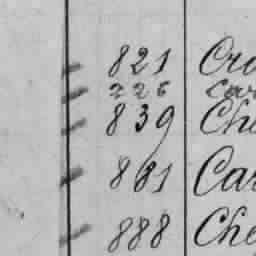 821 Cro
226 Car
839 Che
881 Car
888 Che